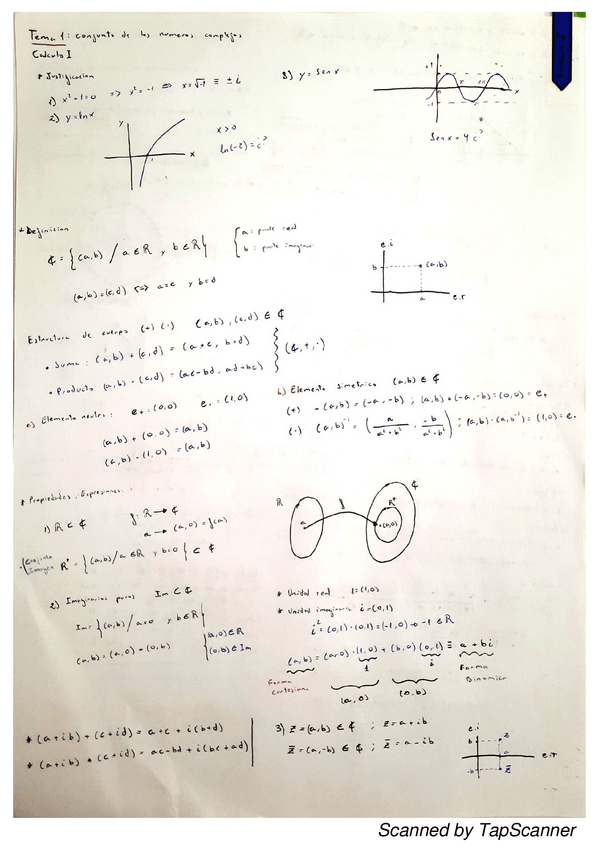 Tema 1: conjunto de los numeros complejos
Calculo I
* Justificacion
1) x²+1=0 => x²=-1 => x=√-1 ≡ ± i
2) y=lnx
y
x
x>0
ln(-2)=¿?
3) y = Sen x
1
-1
π
2π
x
Sen x = 4 ¿?
* Definicion
₵ = {(a,b) / a ∈ ℝ y b ∈ ℝ}
a: parte real
b: parte imaginaria
(a,b)=(c,d) <=> a=c y b=d
e.i
b
(a,b)
a
e.r
Estructura de cuerpo (+) (·) (a,b),(c,d) ∈ ₵
• Suma: (a,b) + (c,d) = (a+c, b+d)
• Producto (a,b) · (c,d) = (ac-bd, ad+bc)
(₵,+,·)
a) Elemento neutro: e+=(0,0) e.=(1,0)
(a,b) + (0,0) = (a,b)
(a,b) · (1,0) = (a,b)
b) Elemento simetrico (a,b) ∈ ₵
(+) -(a,b) = (-a,-b) ; (a,b)+(-a,-b)=(0,0)=e+
(·) (a,b)⁻¹ = (a/a²+b², -b/a²+b²) ; (a,b)·(a,b)⁻¹=(1,0)=e.
* Propiedades. Expresiones:
1) ℝ ⊂ ₵ f: ℝ → ₵
a → (a,0) = f(a)
Conjunto Imagen ℝ* = {(a,b)/a∈ℝ y b=0} ⊂ ₵
ℝ
f
₵
a
ℝ*
(a,0)
2) Imaginarios puros Im ⊂ ₵
Im = {(a,b) / a=0 y b∈ℝ}
(a,b) = (a,0) + (0,b)
(a,0) ∈ ℝ
(0,b) ∈ Im
* Unidad real 1=(1,0)
* Unidad imaginaria i=(0,1)
i² = (0,1)·(0,1)=(-1,0) → -1 ∈ ℝ
(a,b) = (a,0)·(1,0) + (b,0)(0,1) ≡ a + bi
1
i
Forma Cartesiana
(a,0)
(0,b)
Forma Binomica
* (a+ib) + (c+id) = a+c + i(b+d)
* (a+ib) * (c+id) = ac-bd + i(bc+ad)
3) z=(a,b) ∈ ₵ ; z=a+ib
z̄=(a,-b) ∈ ₵ ; z̄=a-ib
e.i
b
z
a
e.r
-b
z̄
Scanned by TapScanner